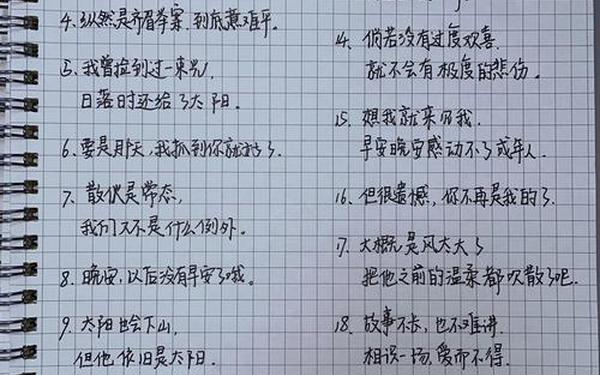 4. 纵然是齐眉举案,到底意难平。
5. 我曾捡到过一束光
日落时还给了太阳。
6. 要是那天,我抓到你就好了。
7. 散伙是常态,
我们又不是什么例外。
8. 晚安,以后没有早安了哦。
9. 太阳也会下山,
但他依旧是太阳。
14. 倘若没有过度欢喜
就不会有极度的悲伤。
15. 想我就来见我,
早安晚安感动不了成年人.
16. 但很遗憾,你不再是我的了.
17. 大概是风太大了
把他之前的温柔都吹散了吧.
18. 故事不长,也不难讲.
相识一场,爱而不得.